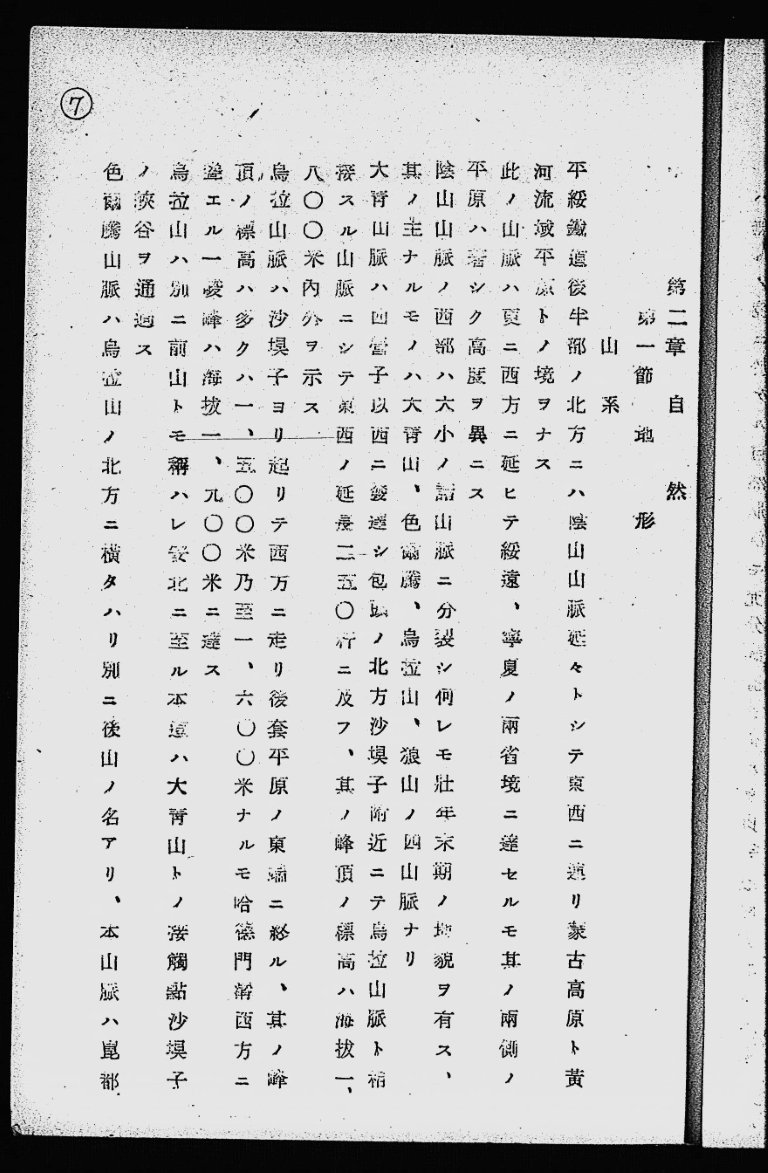 ⑦
第二章 自然
第一節 地形
山系
平綏鐵道後半部ノ北方ニハ陰山山脈延々トシテ東西ニ連リ蒙古高原ト黃
河流域平原トノ境ヲナス
此ノ山脈ハ更ニ西方ニ延ヒテ綏遠、寧夏ノ兩省境ニ達セルモ其ノ兩側ノ
平原ハ著シク高度ヲ異ニス
陰山山脈ノ西部ハ大小ノ諸山脈ニ分裂シ何レモ壯年末期ノ地貌ヲ有ス、
其ノ主ナルモノハ大青山、色爾騰、烏拉山、狼山ノ四山脈ナリ
大青山脈ハ四營子以西ニ發達シ包頭ノ北方沙垻子附近ニテ烏拉山脈ト相
接スル山脈ニシテ東西ノ延長二五〇粁ニ及フ、其ノ峰頂ノ標高ハ海拔一、
八〇〇米內外ヲ示ス
烏拉山脈ハ沙垻子ヨリ起リテ西方ニ走リ後套平原ノ東端ニ終ル、其ノ峰
頂ノ標高ハ多クハ一、五〇〇米乃至一、六〇〇米ナルモ哈德門溝西方ニ
聳エル一峰ハ海拔一、九〇〇米ニ達ス
烏拉山ハ別ニ前山トモ稱ハレ安北ニ至ル本道ハ大青山トノ接觸點沙垻子
ノ峽谷ヲ通過ス
色爾騰山脈ハ烏拉山ノ北方ニ橫タハリ別ニ後山ノ名アリ、本山脈ハ崑都